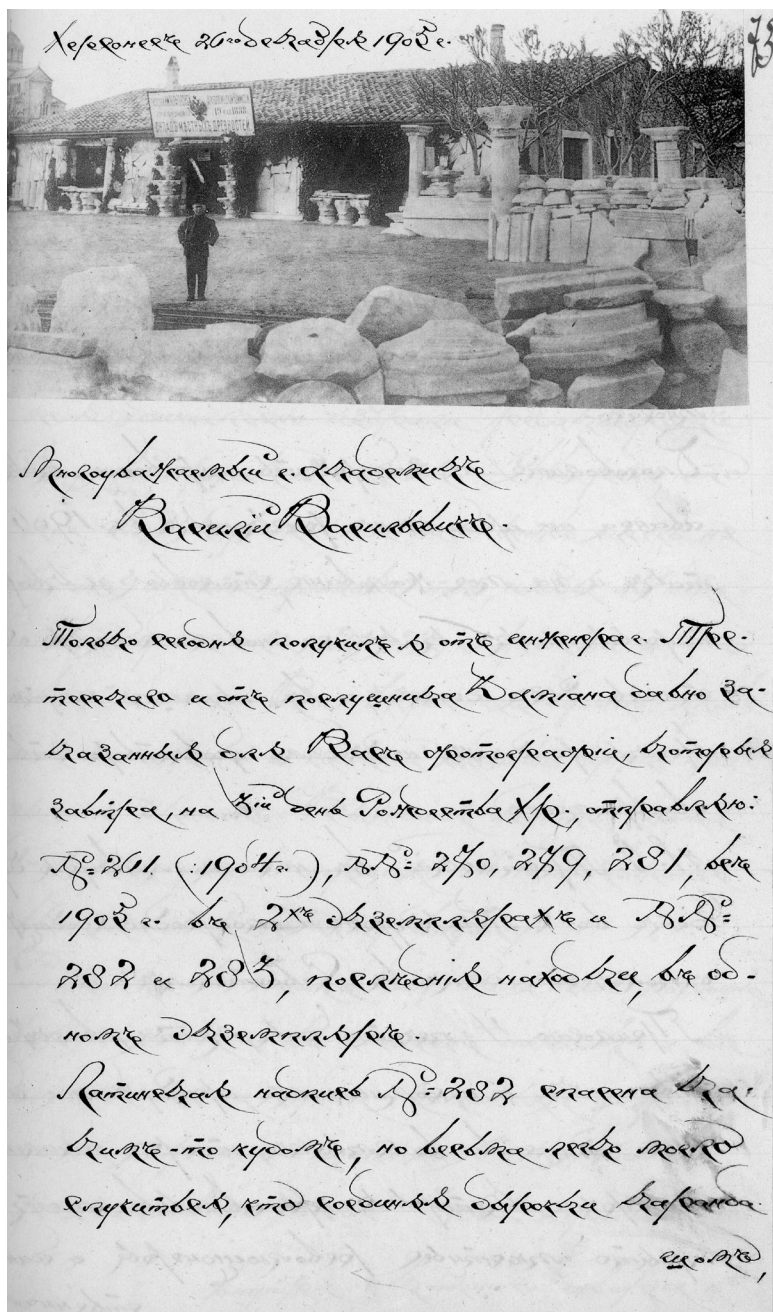 Херсонесъ 26го декабря 1905 г.
73
СКЛАДЪ МѢСТНЫХЪ ДРЕВНОСТЕЙ
Многоуважаемый г. академикъ
Василій Васильевичъ
Только сегодня получилъ я отъ инженера г.
и отъ послушника Дамiана давно за-
казанныя для Васъ фотографій, которыя
завтра, на 3ій день Рождества Хр., отправляю:
№ 261. (:1904 г.), №№ 270, 279, 281, всѣ
1905 г. въ 2хъ экземплярахъ и №№
282 и 283, послѣднія находки, въ од-
номъ экземплярѣ.
Латинская надпись № 282 спасена ка-
кимъ-то чудомъ, но весьма легко могло
случиться, что каранда-
шомъ,